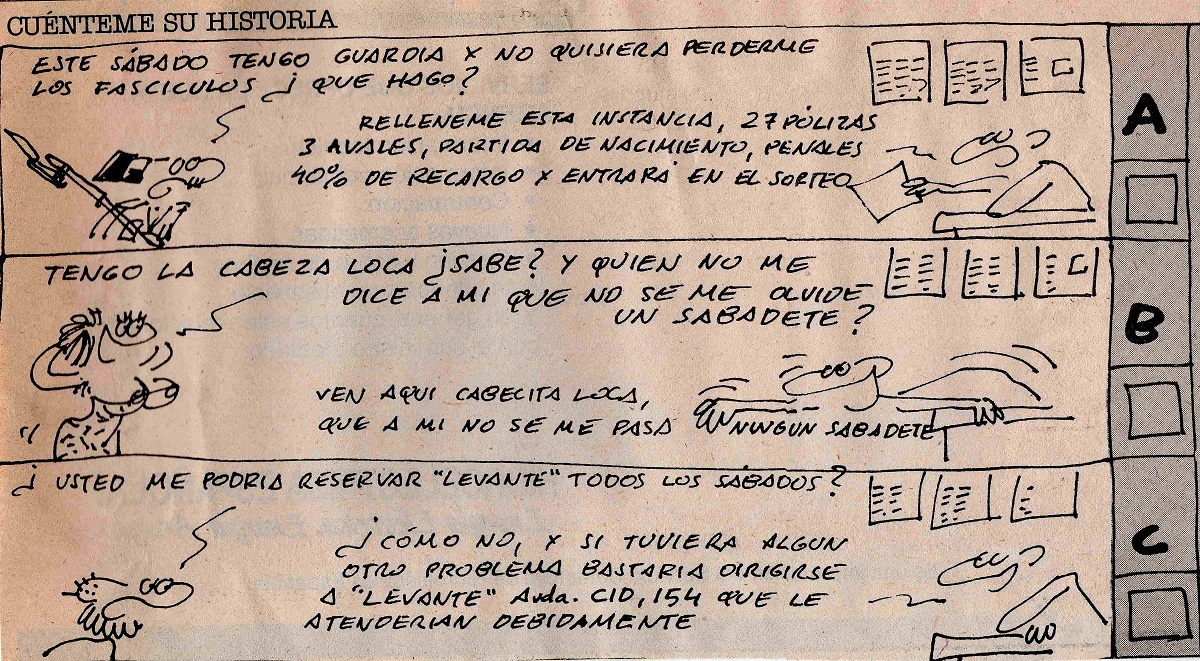 CUÉNTEME SU HISTORIA
ESTE SÁBADO TENGO GUARDIA Y NO QUISIERA PERDERME
LOS FASCICULOS ¿ QUE HAGO?
RELLENEME ESTA INSTANCIA, 27 PÓLIZAS
3 AVALES, PARTIDA DE NACIMIENTO, PENALES
40% DE RECARGO Y ENTRARÁ EN EL SORTEO
A
TENGO LA CABEZA LOCA ¿SABE? Y QUIEN NO ME
DICE A MI QUE NO SE ME OLVIDE
UN SABADETE?
VEN AQUI CABECITA LOCA,
QUE A MI NO SE ME PASA NINGUN SABADETE
B
¿ USTED ME PODRIA RESERVAR "LEVANTE" TODOS LOS SÁBADOS?
¿CÓMO NO, Y SI TUVIERA ALGUN
OTRO PROBLEMA BASTARIA DIRIGIRSE
A "LEVANTE" Avda. CID, 154 QUE LE
ATENDERIAN DEBIDAMENTE
C